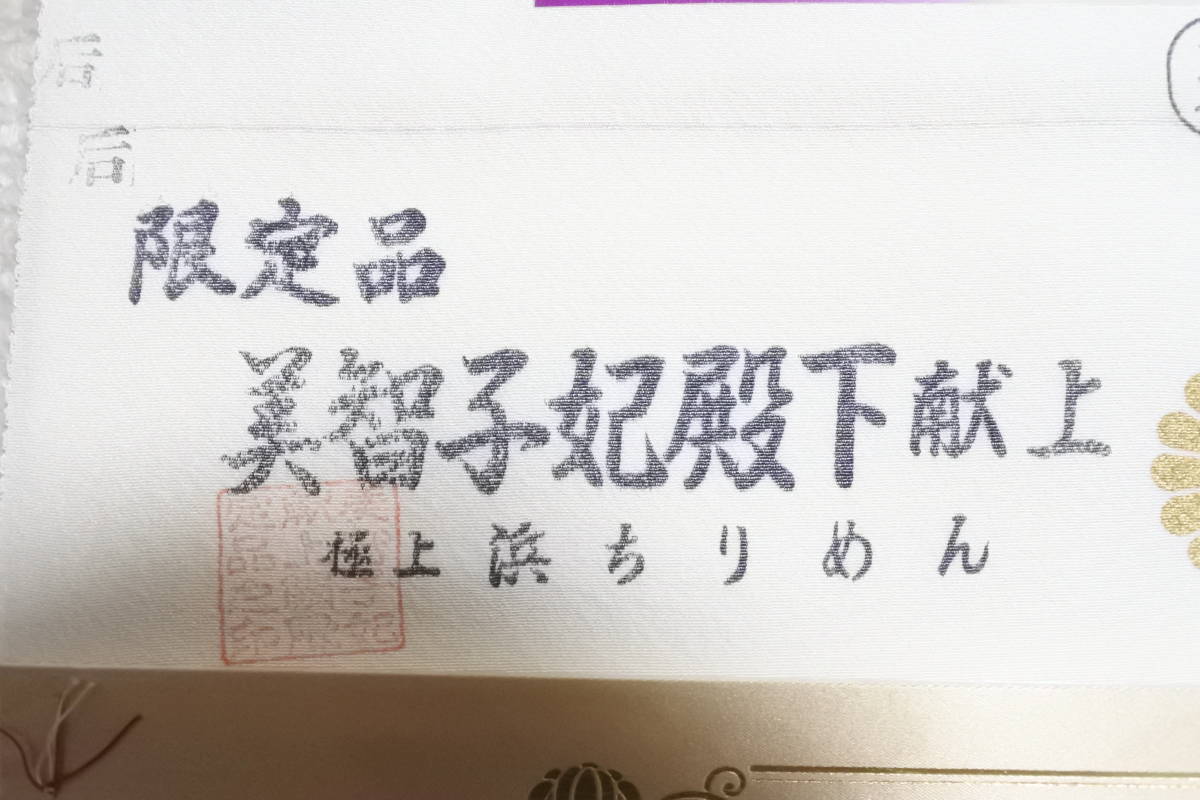 后
后
限定品
美智子妃殿下献上
極上浜ちりめん